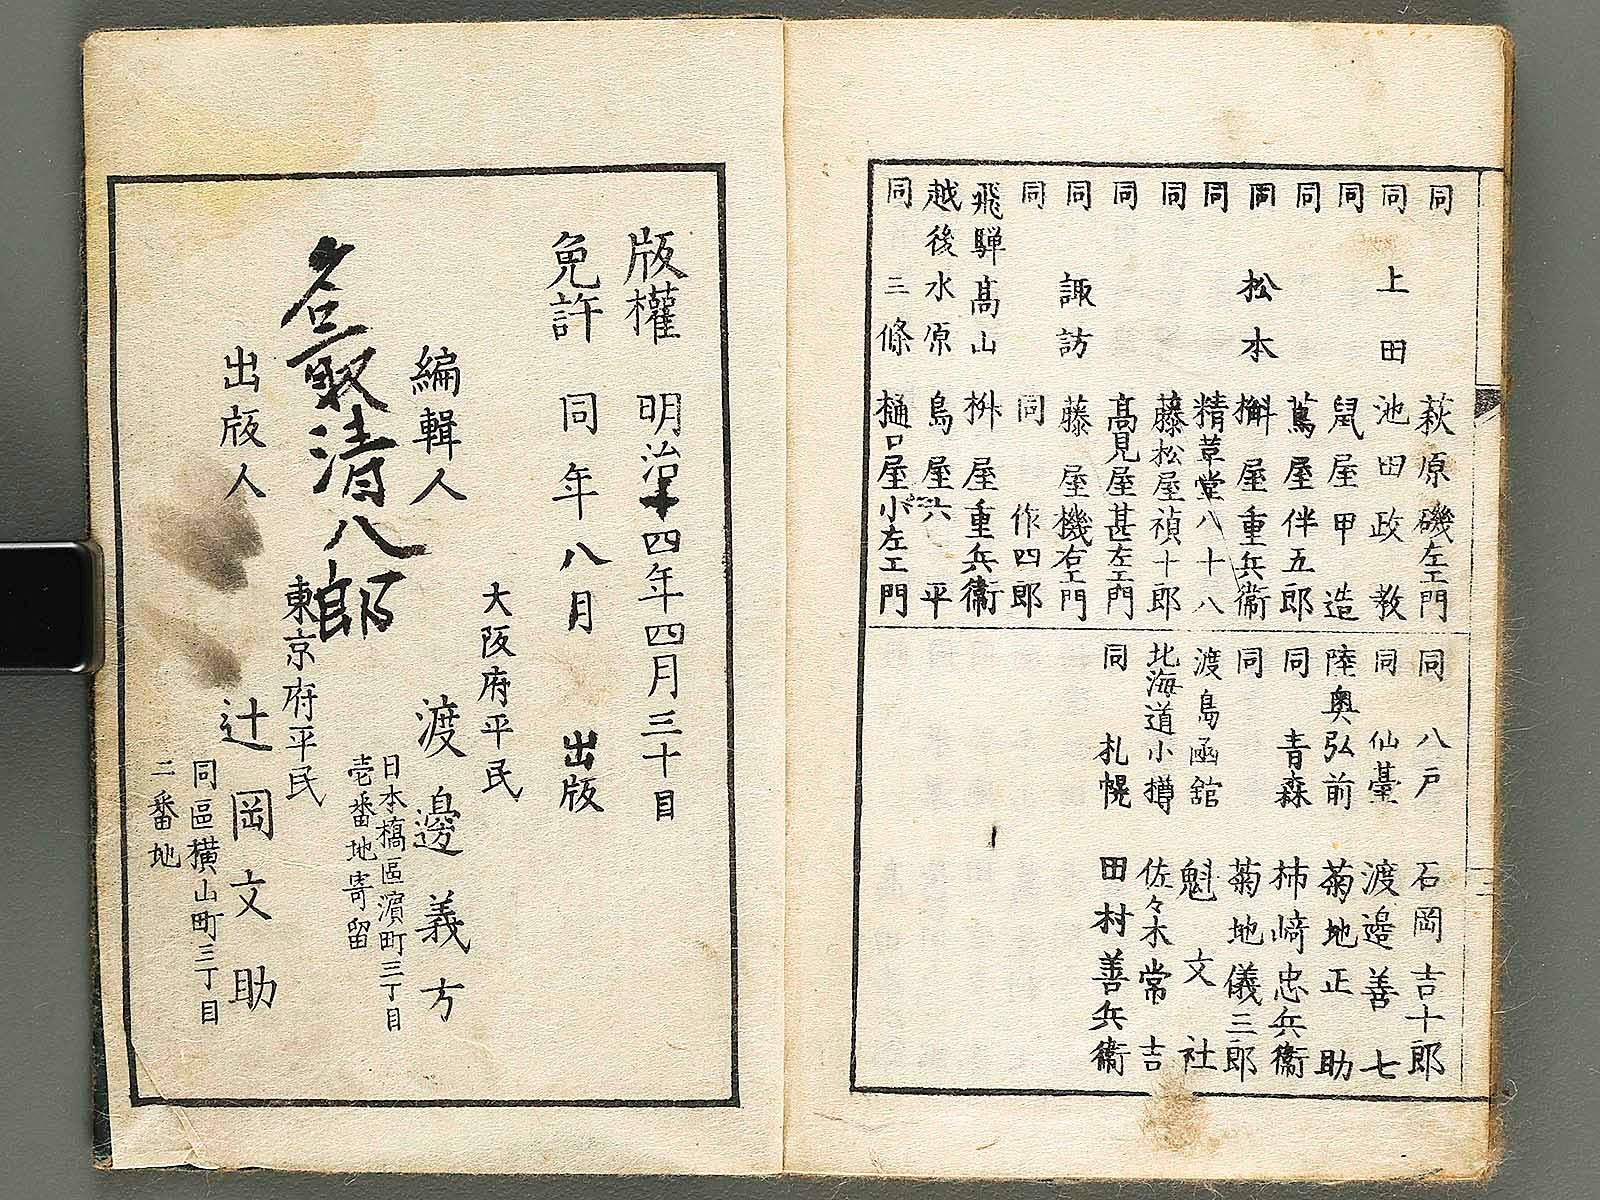 同 萩原磯左エ門
同 上田 池田政教
同 鼠屋甲造
同 蔦屋伴五郎
同 松本 槲屋重兵衛
同 精草堂八十八
同 藤松屋禎十郎
同 高見屋甚左エ門
同 諏訪 藤屋機右エ門
同 同 作四郎
飛騨高山 桝屋重兵衛
越後水原 島屋六平
同 三條 樋口屋小左エ門
同 八戸 石岡吉十郎
同 仙臺 渡邉善七
陸奥弘前 菊地正助
同 青森 柿﨑忠兵衛
同 菊地儀三郎
渡島函舘 魁文社
北海道小樽 佐々木常吉
同 札幌 田村善兵衛
版權 明治十四年四月三十日
免許 同年八月 出版
大阪府平民
編輯人 渡邊義方
日本橋區濵町三丁目
壱番地寄留
名取清八郎
東京府平民
出版人 辻岡文助
同區横山町三丁目
二番地